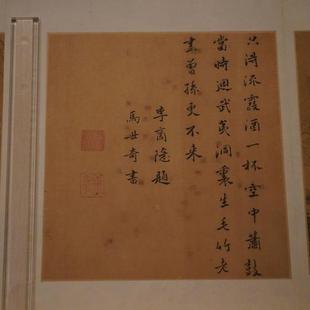 只得流霞酒一杯空中蕭鼓
當時迴武夷洞裏生毛竹老
盡曾孫更不来
李商隱題
馬世奇書